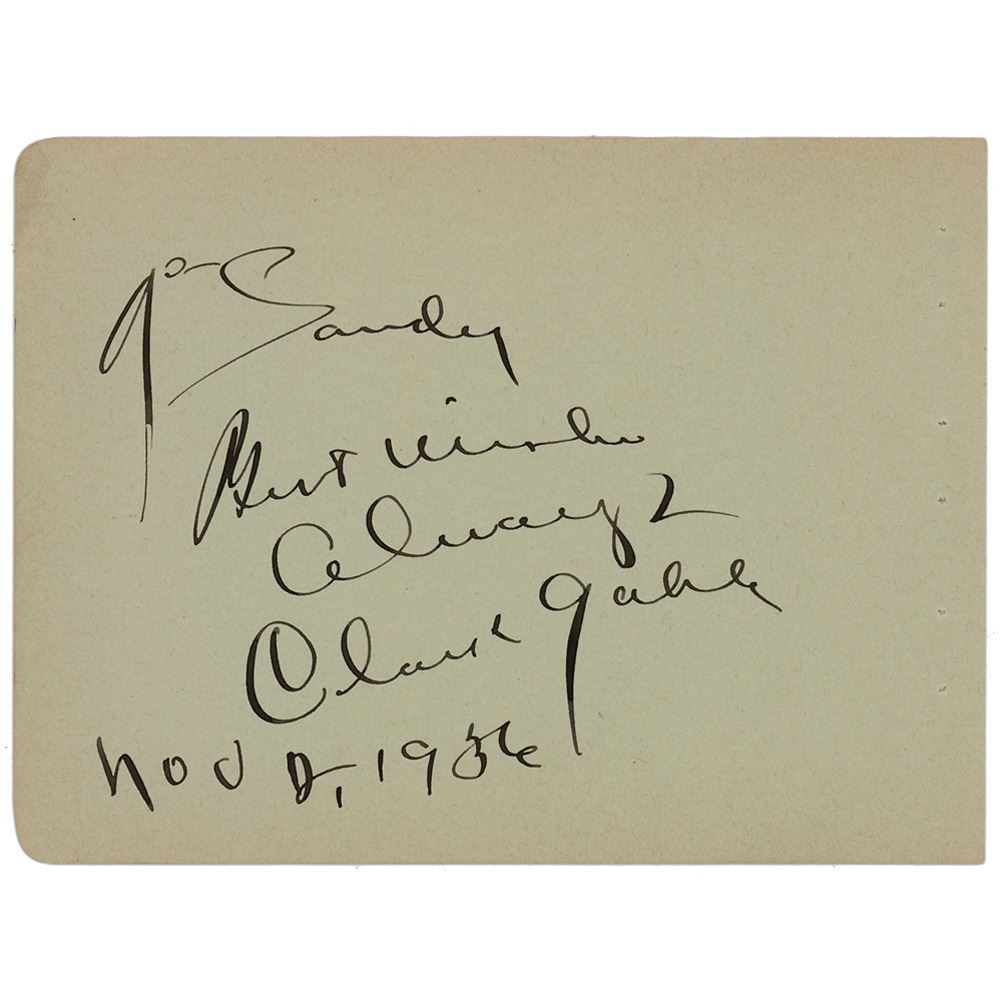 To Sandy
Best Wishes
Always
Clark Gable
Nov 1936